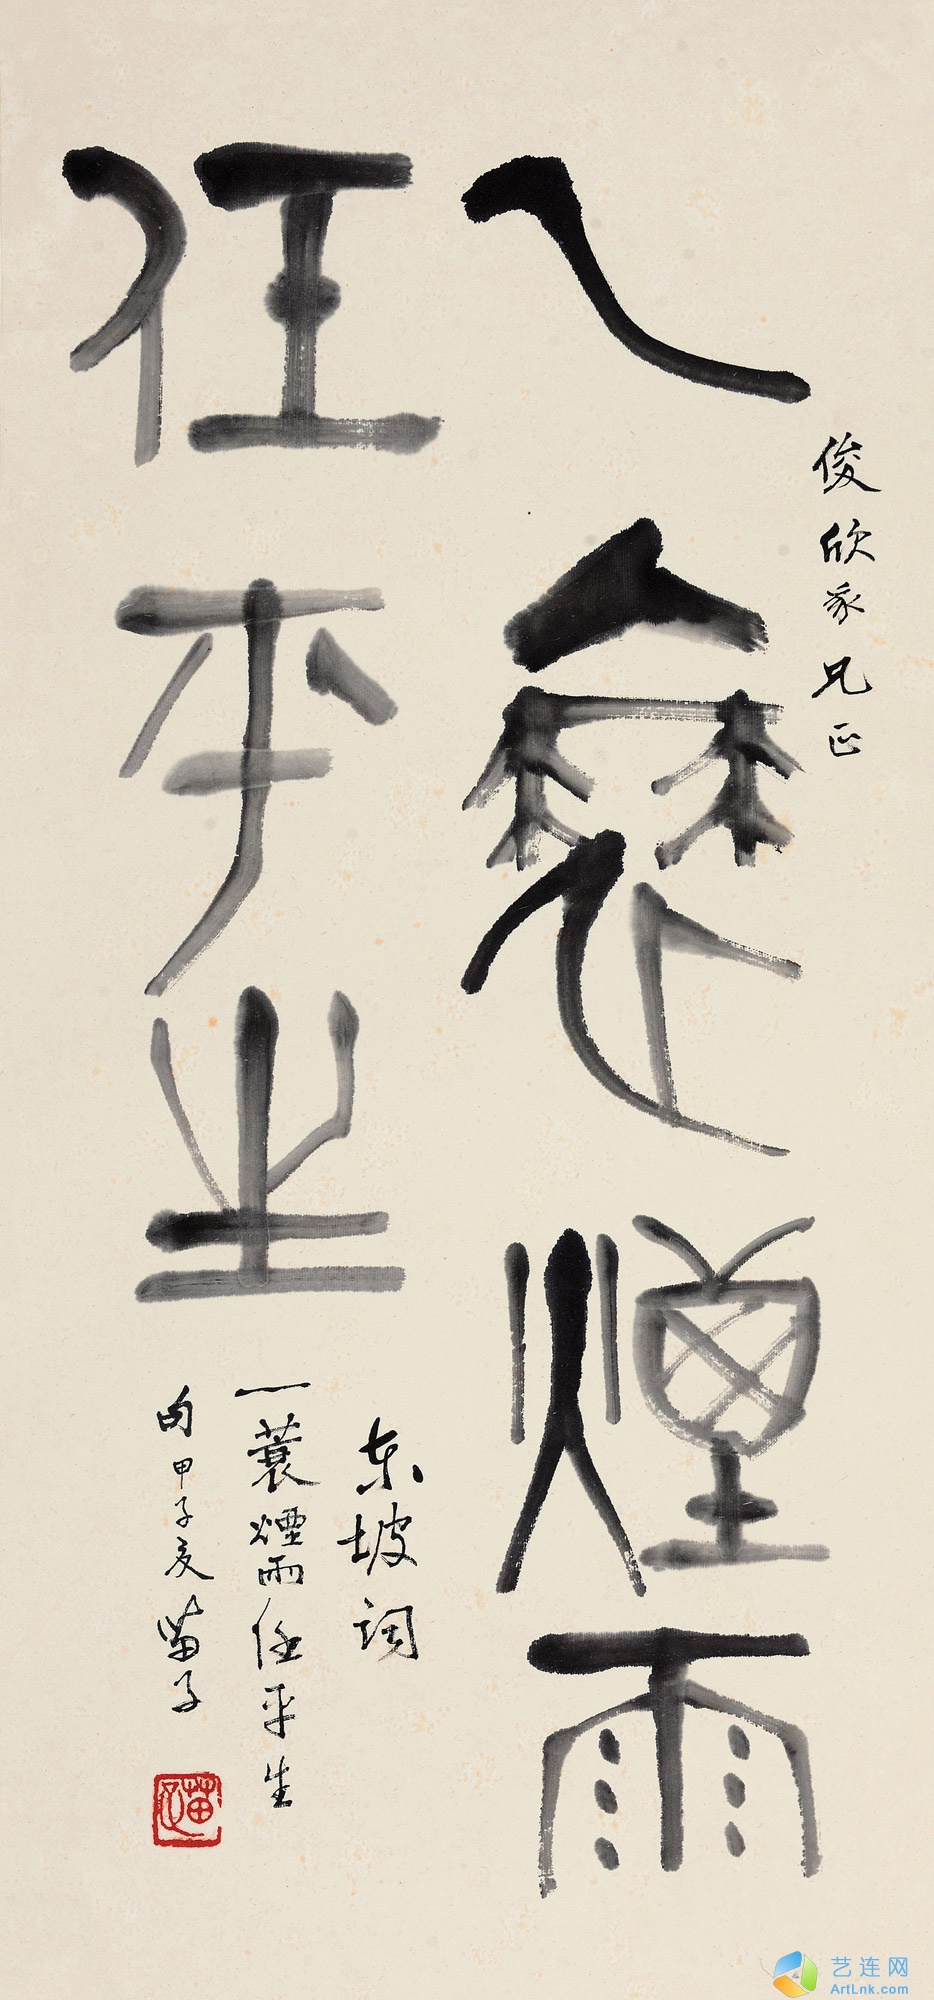 俊欣家兄正
一蓑煙雨
任平生
东坡词
一蓑煙雨任平生
句 甲子夏 苗子
艺连网
ArtLnk.com